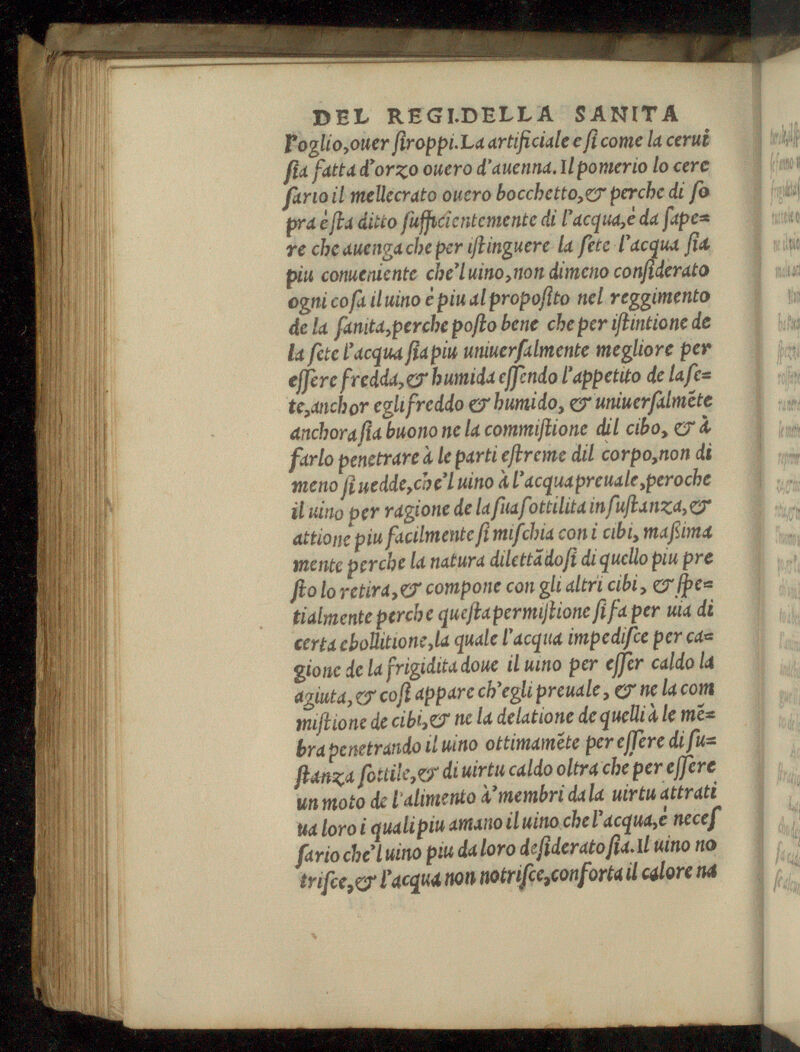 DEL REGI.DELLA SANITA
Foglio,ouer ſiroppi.La artificiale e ſi come la ceruì
ſia fatta d'orzo ouero d'auenna.Il pomerio lo cere
ſario il mellecrato ouero bocchetto,& perche di ſo
pra è ſta ditto ſufficientemente di l'acqua,è da ſape=
re che auenga che per iſtinguere la ſete l'acqua ſia
piu conueniente che'l uino,non dimeno conſiderato
ogni coſa il uino è piu al propoſito nel reggimento
de la ſanita,perche poſto bene che per iſtintione de
la ſete l'acqua ſia piu uniuerſalmente megliore per
eſſere fredda,& humida eſſendo l'appetito de la ſe=
te,anchor egli freddo & humido, & uniuerſalmẽte
anchora ſia buono ne la commiſtione dil cibo, & à
farlo penetrare à le parti eſtreme dil corpo,non di
meno ſi uedde,che'l uino à l'acqua preuale,peroche
il uino per ragione de la ſua ſottilita in ſuſtanza,&
attione piu facilmente ſi miſchia con i cibi, maſsima
mente perche la natura dilettãdoſi di quello piu pre
ſto lo retira,& compone con gli altri cibi, & ſpe=
tialmente perche queſta permiſtione ſi fa per uia di
certa ebollitione,la quale l'acqua impediſce per ca=
gione de la frigidita doue il uino per eſſer caldo la
agiuta,& coſi appare ch'egli preuale, & ne la com
miſtione de cibi,& ne la delatione de quelli à le mẽ=
bra penetrando il uino ottimamẽte per eſſere di ſu=
ſtanza ſottile,& di uirtu caldo oltra che per eſſere
un moto de l'alimento à'membri da la uirtu attrati
ua loro i quali piu amano il uino che l'acqua,è neceſ
ſario che'l uino piu da loro deſiderato ſia.Il uino no
triſce,& l'acqua non notriſce,conforta il calore na